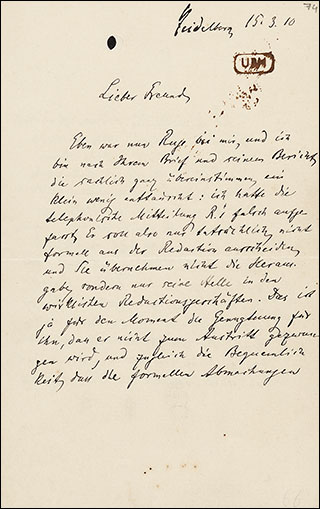 74
Heidelberg 15. 3. 10
UBH
Lieber Freund,
Eben war nun Ruge bei mir, und ich
bin nach Ihrem Brief und seinem Bericht,
die sachlich ganz übereinstimmen, ein
klein wenig enttäuscht: ich hatte die
telephonische Mitteilung R.'s falsch aufge-
fasst. Er soll also nun tatsächlich nicht
formell aus der Redaktion ausscheiden,
und Sie übernehmen nicht die Heraus-
gabe sondern nur seine Stelle in den
wirklichen Redaktionsgeschäften. Das ist
ja für den Moment die Genugtuung für
ihn, dass er nicht zum Austritt gezwun-
gen wird, und zugleich die Bequemlich-
keit, dass die formellen Abmachungen